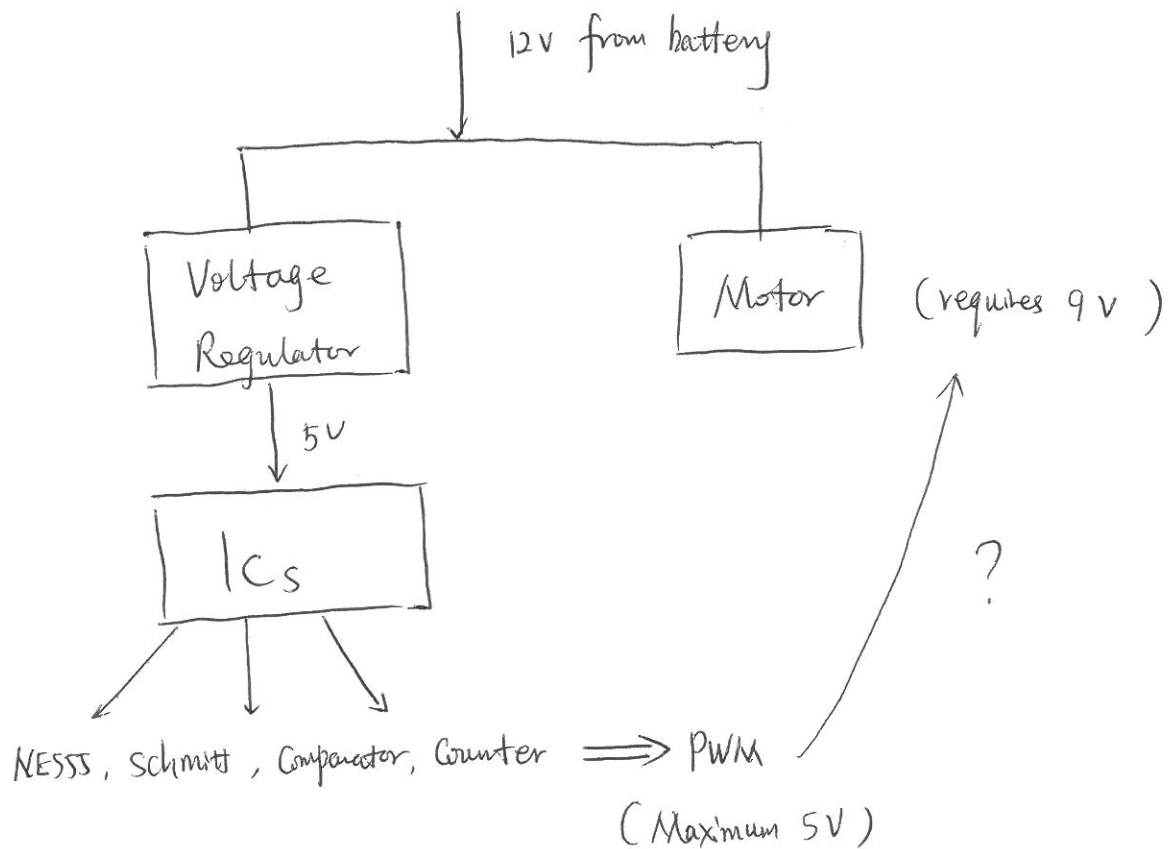 12V from battery
Voltage
Regulator
Motor
(requires 9V)
5V
ICs
?
NE555, Schmitt, Comparator, Counter ⇒ PWM
(Maximum 5V)